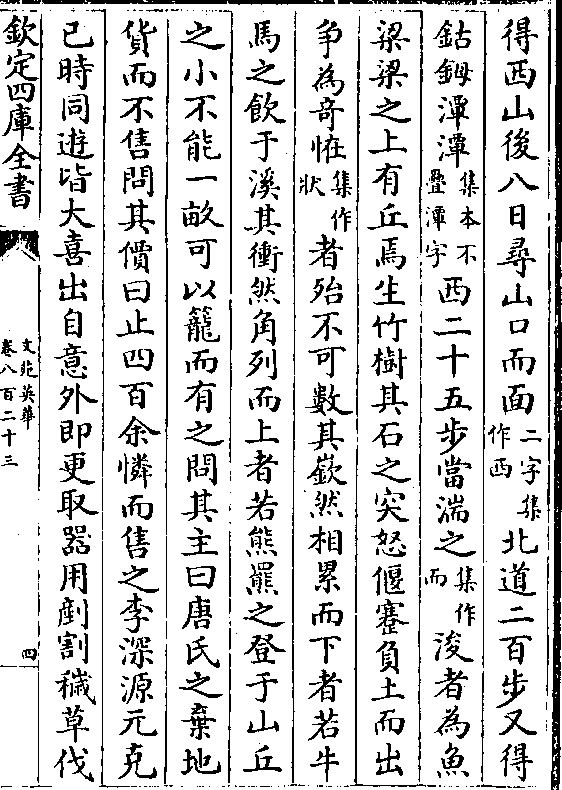 得西山後八日尋山口而面二字集作西北道二百步又得
鈷鉧潭潭集本不疊潭字西二十五步當湍之集作而浚者為魚
梁梁之上有丘焉生竹樹其石之突怒偃蹇負土而出
爭為奇恠集作狀者殆不可數其嶔然相累而下者若牛
馬之飲于溪其衝然角列而上者若熊羆之登于山丘
之小不能一畝可以籠而有之問其主曰唐氏之棄地
貨而不售問其價曰止四百余憐而售之李深源元克
已時同遊皆大喜出自意外即更取器用剷割穢草伐
欽定四庫全書
文苑英華
卷八百二十三
四